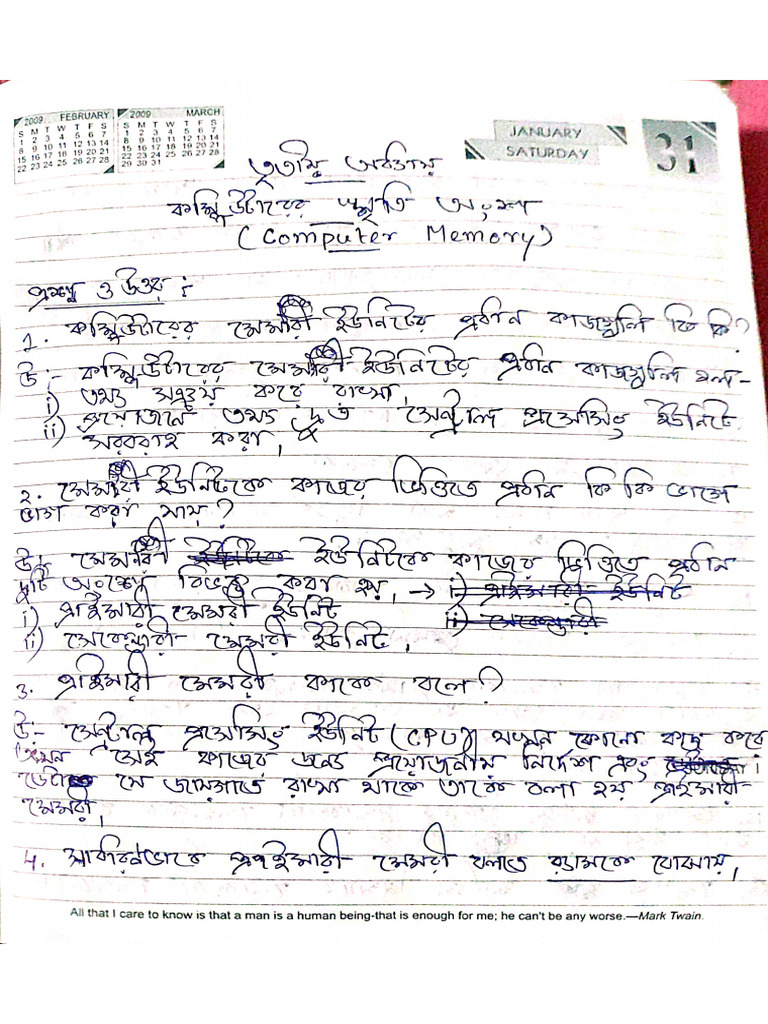 2009 FEBRUARY
S M T W T F S
1 2 3 4 5 6 7
8 9 10 11 12 13 14
15 16 17 18 19 20 21
22 23 24 25 26 27 28
2009 MARCH
S M T W T F S
1 2 3 4 5 6 7
8 9 10 11 12 13 14
15 16 17 18 19 20 21
22 23 24 25 26 27 28
29 30 31
JANUARY
SATURDAY
31
তৃতীয় অধ্যায়
কম্পিউটারের স্মৃতি অংশ
(Computer Memory)
প্রশ্ন ও উত্তর :
1. কম্পিউটারের মেমরী ইউনিটের প্রধান কাজগুলি কি কি?
উ:- কম্পিউটারের মেমরী ইউনিটের প্রধান কাজগুলি হল-
i) তথ্য সঞ্চয় করে রাখা,
ii) প্রয়োজনে তথ্য দ্রুত সেন্ট্রাল প্রসেসিং ইউনিটে
সরবরাহ করা,
২. মেমরী ইউনিটকে কাজের ভিত্তিতে প্রধান কি কি ভাগে
ভাগ করা যায়?
উ:- মেমরী ইউনিটকে কাজের ভিত্তিতে প্রধান
দুটি অংশে বিভক্ত করা হয়, → i) প্রাইমারী ইউনিট
i) প্রাইমারী মেমরী ইউনিট ii) সেকেন্ডারী
ii) সেকেন্ডারী মেমরী ইউনিট,
3. প্রাইমারী মেমরী কাকে বলে?
উ:- সেন্ট্রাল প্রসেসিং ইউনিট (CPU) যখন কোনো কাজ করে
তখন সেই কাজের জন্য প্রয়োজনীয় নির্দেশ এবং
ডেটা যে জায়গাতে রাখা থাকে তাকে বলা হয় প্রাইমারী
মেমরী,
4. সাধারণভাবে প্রাইমারী মেমরী বলতে র‍্যামকে বোঝায়,
All that I care to know is that a man is a human being-that is enough for me; he can't be any worse.—Mark Twain.